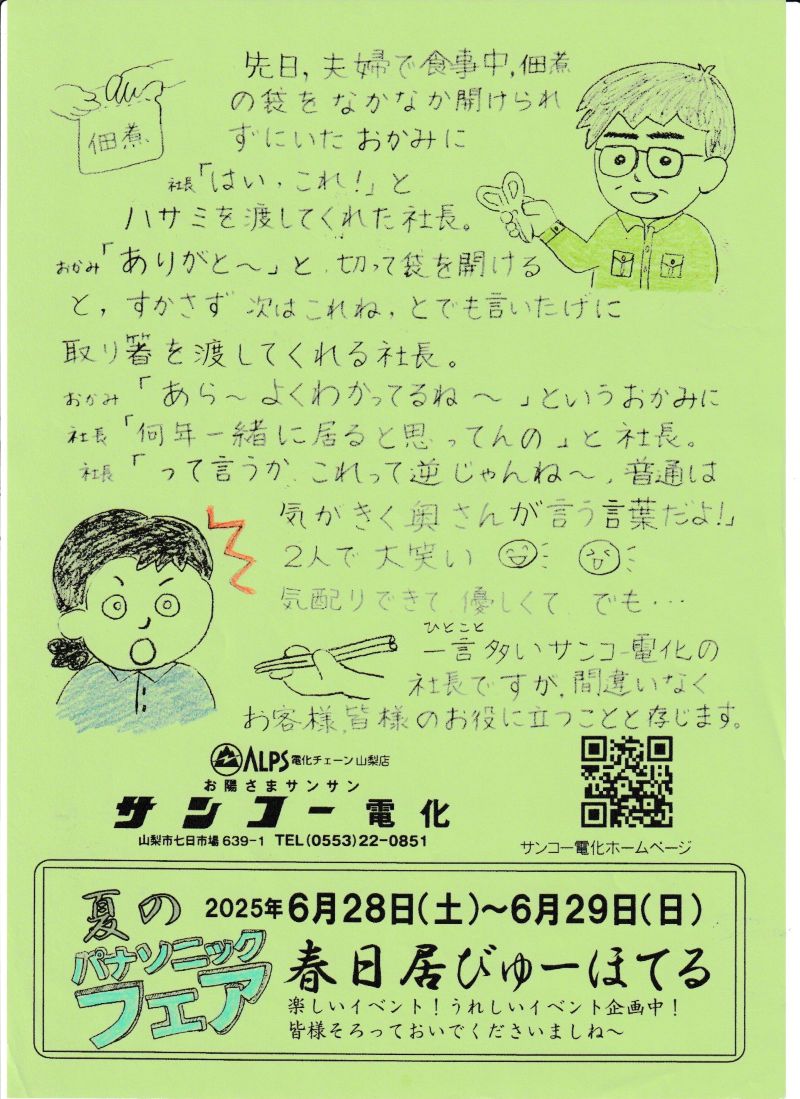 佃煮
先日,夫婦で食事中,佃煮
の袋をなかなか開けられ
ずにいたおかみに
社長「はい・これ!」と
ハサミを渡してくれた社長。
おかみ「ありがと〜」と,切って袋を開ける
と,すかさず次はこれね,とでも言いたげに
取り箸を渡してくれる社長。
おかみ「あら〜よくわかってるね〜」というおかみに
社長「何年一緒に居ると思ってんの」と社長。
社長「って言うか,これって逆じゃんね〜,普通は
気がきく奥さんが言う言葉だよ!」
2人で大笑い
気配りできて,優しくて でも・・・
ひとこと
一言多いサンコー電化の
社長ですが,間違いなく
お客様,皆様のお役に立つことと存じます。
ALPS電化チェーン山梨店
お陽さまサンサン
サンコー電化
山梨市七日市場639-1 TEL(0553)22-0851
サンコー電化ホームページ
夏の
パナソニック
フェア
2025年6月28日(土)〜6月29日(日)
春日居びゅーほてる
楽しいイベント!うれしいイベント企画中!
皆様そろっておいでくださいましね〜